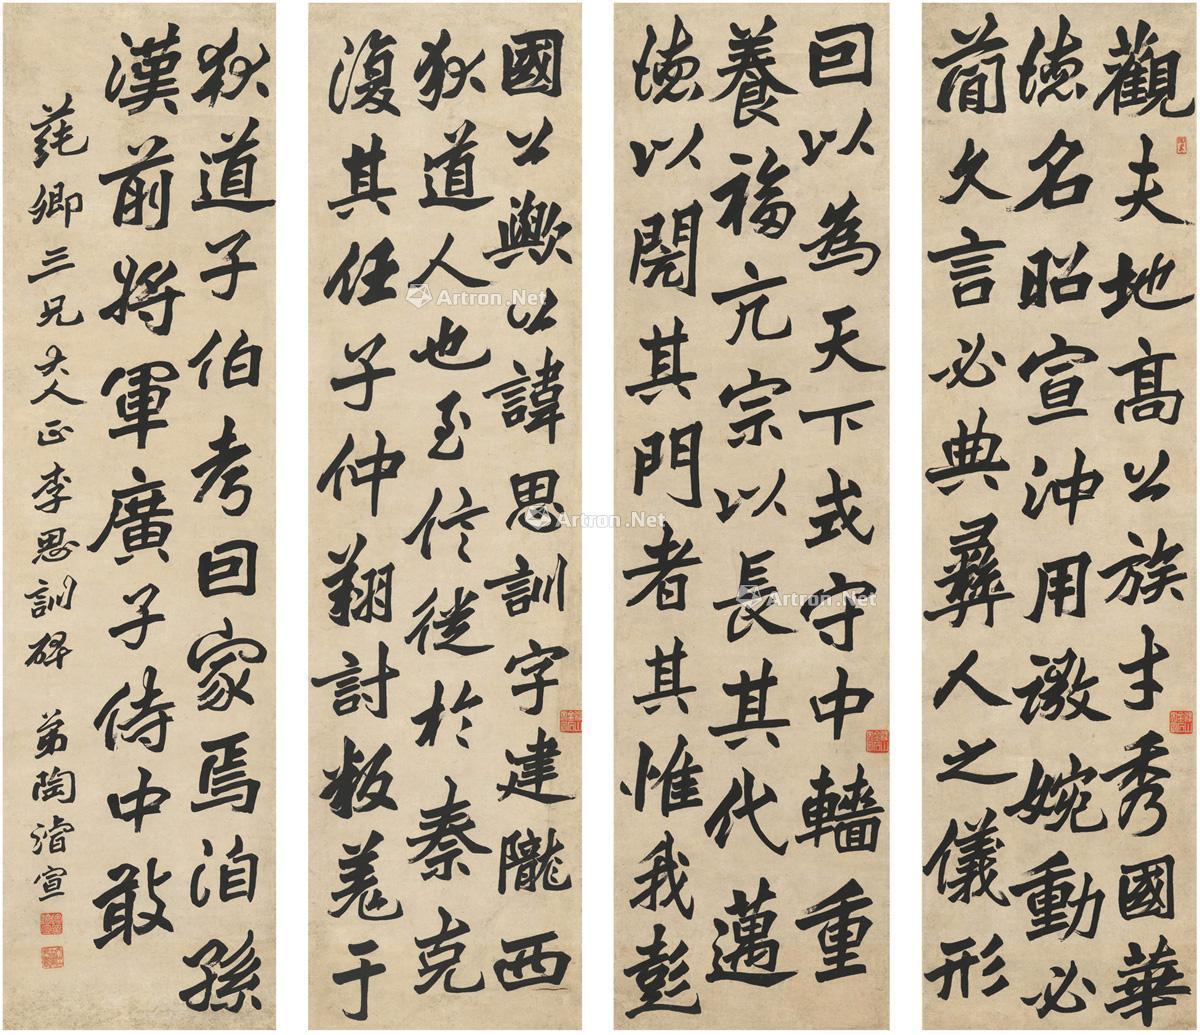 觀夫地高公族才秀國華
德名昭宣沖用微婉動必
簡久言必典彝人之儀形
回以為天下式守中轖重
養福亢宗以長其代邁
德以闊其門者其惟我彭
國公歟公諱思訓字建隴西
狄道人也至信徙於秦克
復其任子仲翔討叛羌于
狄道子伯考因家焉洎孫
漢前將軍廣子侍中敢
卿三兄大人正 李思訓碑 弟陶濬宣
Artron.Net
Artron.Net
Artron.Net